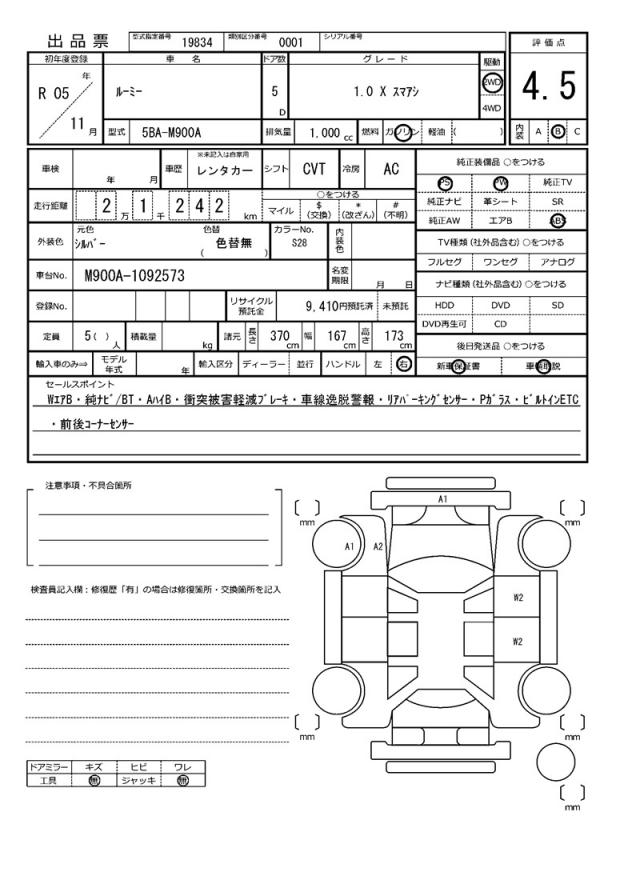 出品票 型式指定番号 19834 類別区分番号 0001 シリアル番号
評価点
4.5
内装 A B C
初年度登録 車名 ドア数 グレード 駆動
R 05 年 11 月 ルーミー 5 D 1.0 X スマアシ 2WD 4WD
型式 5BA-M900A 排気量 1.000 cc 燃料 ガソリン 軽油 ( )
車検 年 月 車歴 ※未記入は自家用 レンタカー シフト CVT 冷房 AC
走行距離 2 万 1 千 2 4 2 km
○をつける
マイル $ (交換) * (改ざん) # (不明)
外装色 元色 シルバー 色替 ( 色替無 ) カラーNo. S28 内装色
車台No. M900A-1092573 名変期限 月 日
登録No. リサイクル預託金 9,410円預託済 未預託
定員 5( )人 積載量 kg 諸元 長さ 370 cm 幅 167 cm 高さ 173 cm
輸入車のみ⇒ モデル年式 年 輸入区分 ディーラー 並行 ハンドル 左 右
純正装備品 ○をつける
PS PW 純正TV
純正ナビ 革シート SR
純正AW エアB ABS
TV種類 (社外品含む) ○をつける
フルセグ ワンセグ アナログ
ナビ種類 (社外品含む) ○をつける
HDD DVD SD
DVD再生可 CD
後日発送品 ○をつける
新車保証書 車輌取説
セールスポイント
WエアB・純ナビ/BT・AハイB・衝突被害軽減ブレーキ・車線逸脱警報・リアパーキングセンサー・Pガラス・ビルトインETC
・前後コーナーセンサー
注意事項・不具合箇所
検査員記入欄：修復歴「有」の場合は修復箇所・交換箇所を記入
ドアミラー キズ ヒビ ワレ
工具 無 ジャッキ 無
A1
mm mm
A1 A2
W2
W2
mm mm
mm